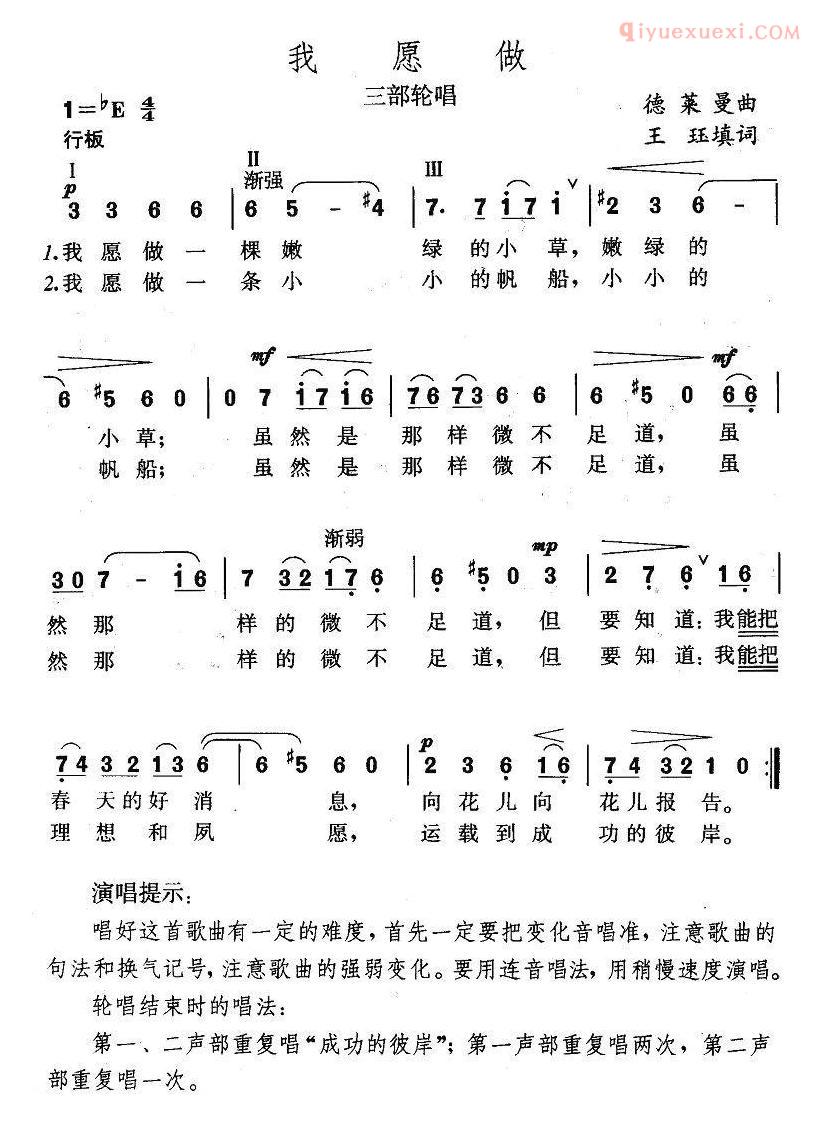 qiyuexuexi.com
我愿做
三部轮唱
1=♭E 4/4
德莱曼曲
行板
王珏填词
I II III
p 渐强
3 3 6 6 | 6 5 - #4 | 7. 7 i 7 i ∨ | #2 3 6 - |
1.我愿做一棵嫩 绿的小草，嫩绿的
2.我愿做一条小 小的帆船，小小的
mf mf
6 #5 6 0 | 0 7 i 7 i 6 | 7 6 7 3 6 6 | 6 #5 0 6 6 |
小草； 虽然是那样微不足道， 虽
帆船； 虽然是那样微不足道， 虽
渐弱 mp
3 0 7 - i 6 | 7 3 2 1 7 6 | 6 #5 0 3 | 2 7 6 ∨ 1 6 |
然那 样的微不足道，但要知道：我能把
然那 样的微不足道，但要知道：我能把
p
7 4 3 2 1 3 6 | 6 #5 6 0 | 2 3 6 1 6 | 7 4 3 2 1 0 :‖
春天的好消 息， 向花儿向花儿报告。
理想和夙 愿， 运载到成功的彼岸。
演唱提示：
唱好这首歌曲有一定的难度，首先一定要把变化音唱准，注意歌曲的
句法和换气记号，注意歌曲的强弱变化。要用连音唱法，用稍慢速度演唱。
轮唱结束时的唱法：
第一、二声部重复唱“成功的彼岸”；第一声部重复唱两次，第二声
部重复唱一次。